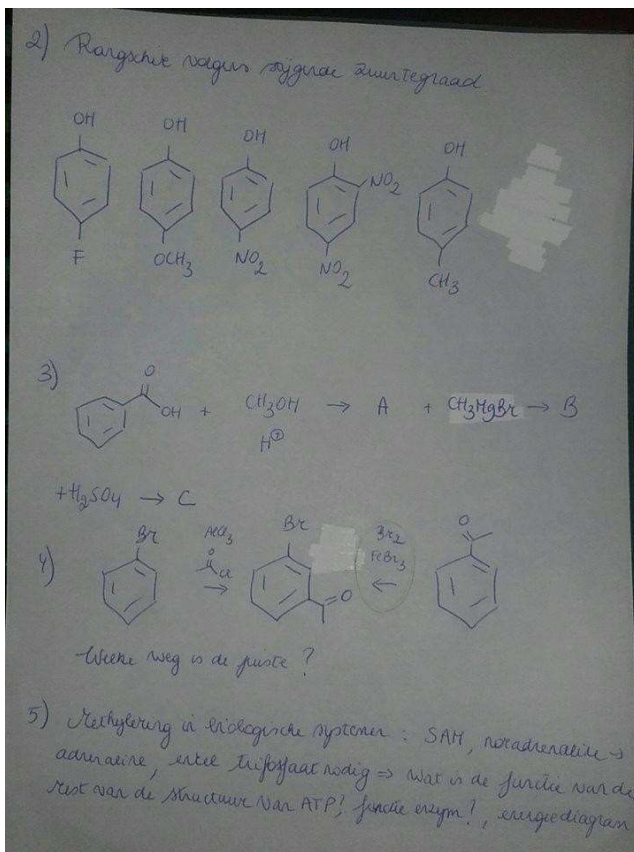 2) Rangschik volgens stijgende zuurtegraad
OH OH OH OH OH
NO2
F OCH3 NO2 NO2 CH3
3)
O
OH + CH3OH → A + CH3MgBr → B
H⊕
+ H2SO4 → C
4)
Br AlCl3 Br Br2 O
O Cl → FeBr3 ←
O
Welke weg is de juiste?
5) Methylering in biologische systemen: SAM, noradrenaline →
adrenaline, enkel trifosfaat nodig ⇒ wat is de functie van de
rest van de structuur van ATP?, functie enzym?, energiediagram